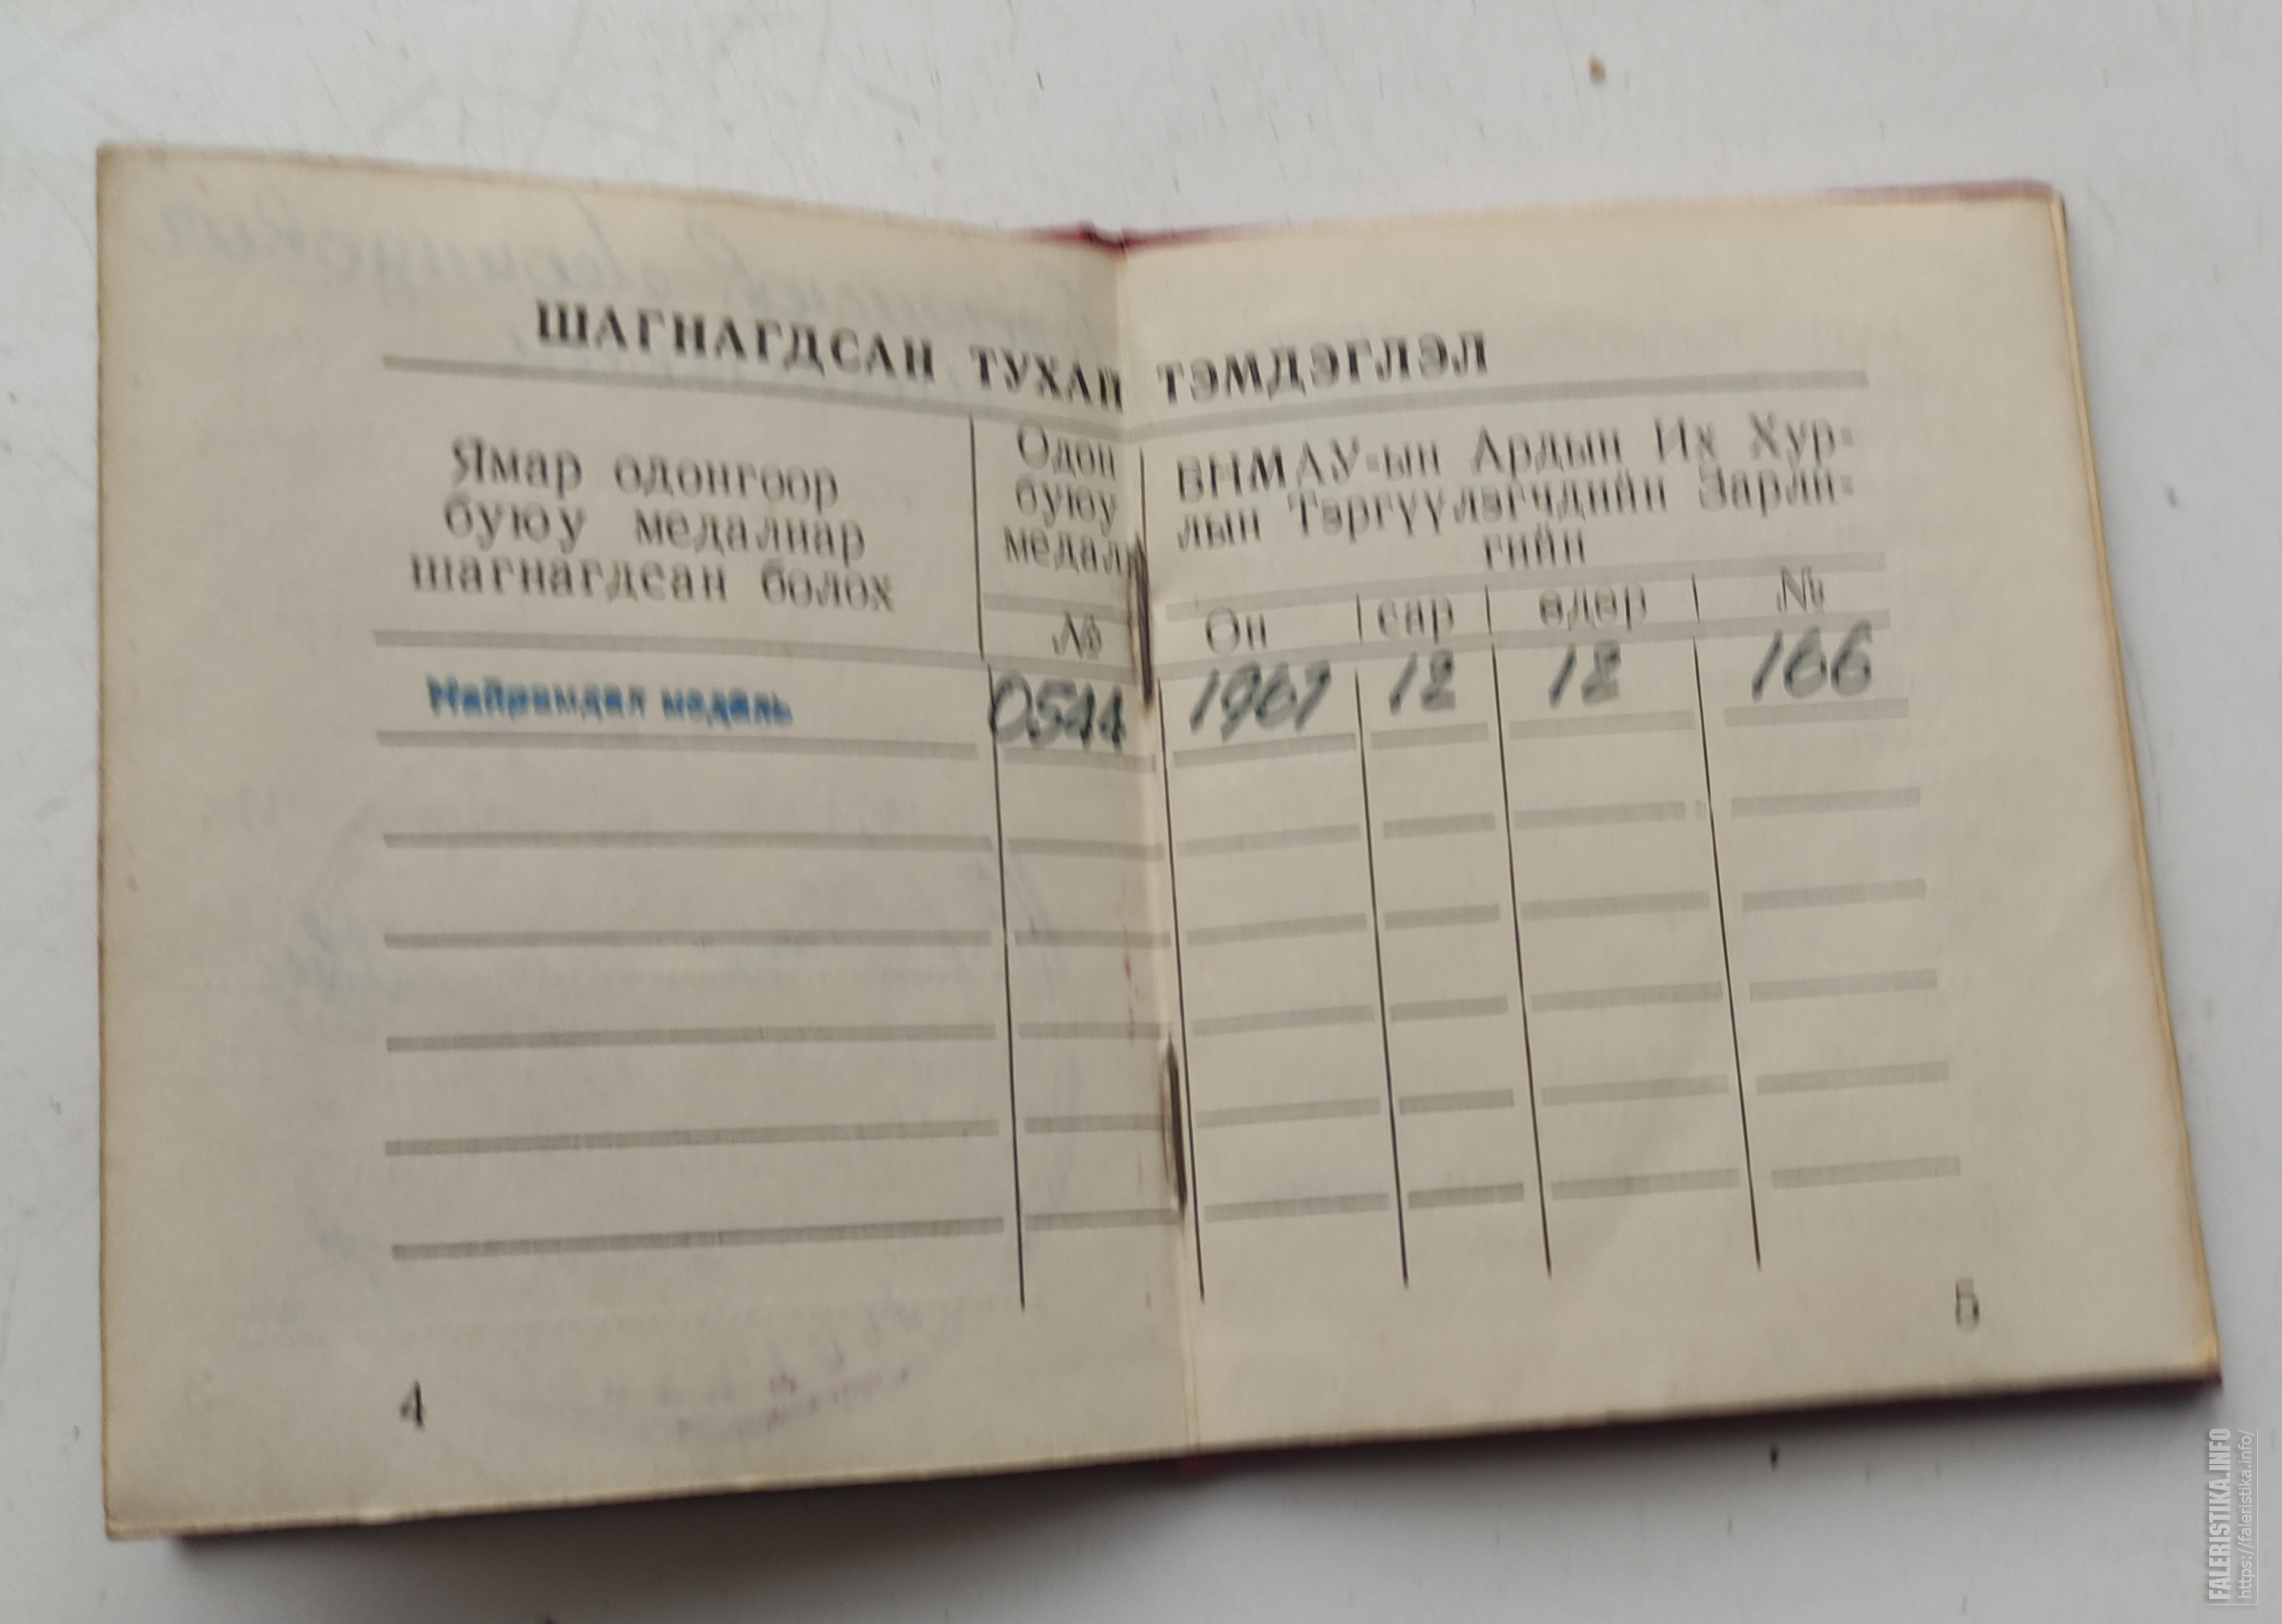 ШАГНАГДСАН ТУХАЙ ТЭМДЭГЛЭЛ
Ямар одонгоор
буюу медалиар
шагнагдсан болох
Одон
буюу
медал
№
БНМАУ-ын Ардын Их Хур-
лын Тэргүүлэгчдийн Зарли-
гийн
Он сар өдөр №
Найрамдал медаль 0544 1967 12 12 166
4
5
FALERISTIKA.INFO
https://faleristika.info/